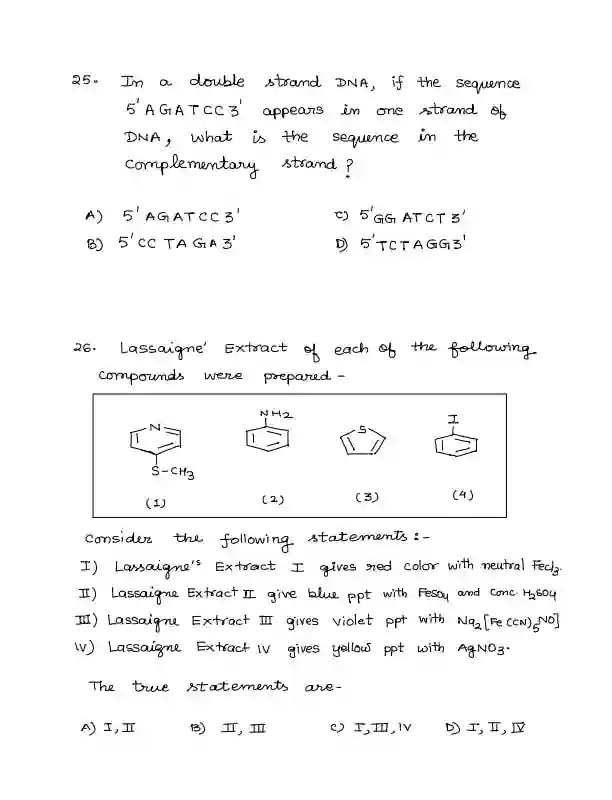 25. In a double strand DNA, if the sequence
5' AGATCC 3' appears in one strand of
DNA, what is the sequence in the
complementary strand?
A) 5' AGATCC 3'
C) 5' GG ATCT 3'
B) 5' CC TAGA 3'
D) 5' TCTAGG 3'
26. Lassaigne' Extract of each of the following
compounds were prepared -
N
S-CH3
(1)
NH2
(2)
S
(3)
I
(4)
Consider the following statements:-
I) Lassaigne's Extract I gives red color with neutral FeCl3.
II) Lassaigne Extract II give blue ppt with FeSO4 and Conc. H2SO4
III) Lassaigne Extract III gives violet ppt with Na2[Fe(CN)5NO]
IV) Lassaigne Extract IV gives yellow ppt with AgNO3.
The true statements are-
A) I, II
B) II, III
C) I, III, IV
D) I, II, IV